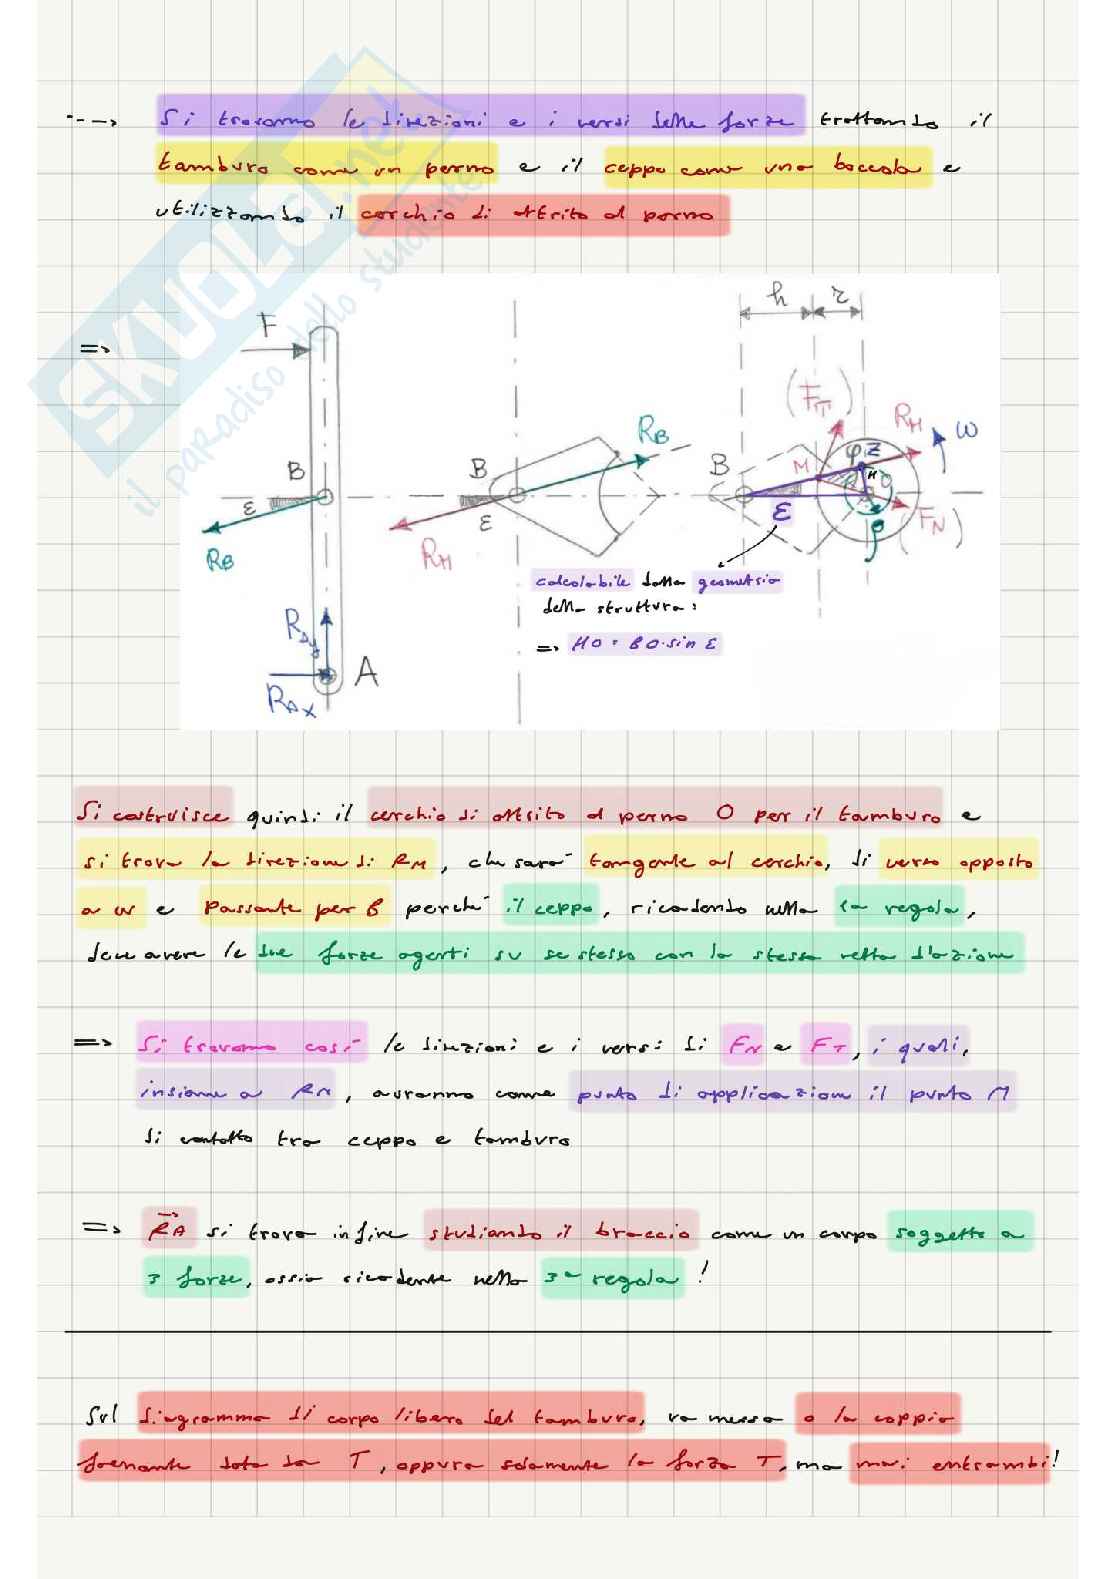 ---> Si trovano le direzioni e i versi delle forze trattando il
tamburo come un perno e il ceppo come una boccola e
utilizzando il cerchio di attrito al perno
SKUOLA.net
il paradiso dello studente
=>
F
B
ε
R_B
R_Ay
R_Ax
A
B
ε
R_B
R_M
h
r
(F_T)
R_M
ω
B
M
φ
Z
H
O
ε
F_N
( )
ρ
calcolabile dalla geometria
della struttura:
=> HO = BO·sin ε
Si costruisce quindi il cerchio di attrito al perno O per il tamburo e
si trova la direzione di R_M, che sarà tangente al cerchio, di verso opposto
a ω e passante per B perché il ceppo, ricadendo nella 1a regola,
deve avere le due forze agenti su se stesso con la stessa retta d'azione
=> Si trovano così le direzioni e i versi di F_N e F_T, i quali,
insieme a R_M, avranno come punto di applicazione il punto M
di contatto tra ceppo e tamburo
=> R_A si trova infine studiando il braccio come un corpo soggetto a
3 forze, ossia ricadente nella 3a regola!
Sul diagramma di corpo libero del tamburo, va messa o la coppia
frenante data da T, oppure solamente la forza T, ma mai entrambi!